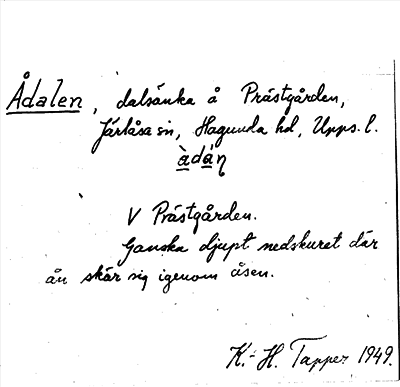 Ådalen, dalsänka å Prästgården,
Järlåsa sn, Hagunda hd, Upps. l.
àdáṇ
V Prästgården.
Ganska djupt nedskuret där
ån skär sig igenom åsen.
K.-H. Tapper 1949.